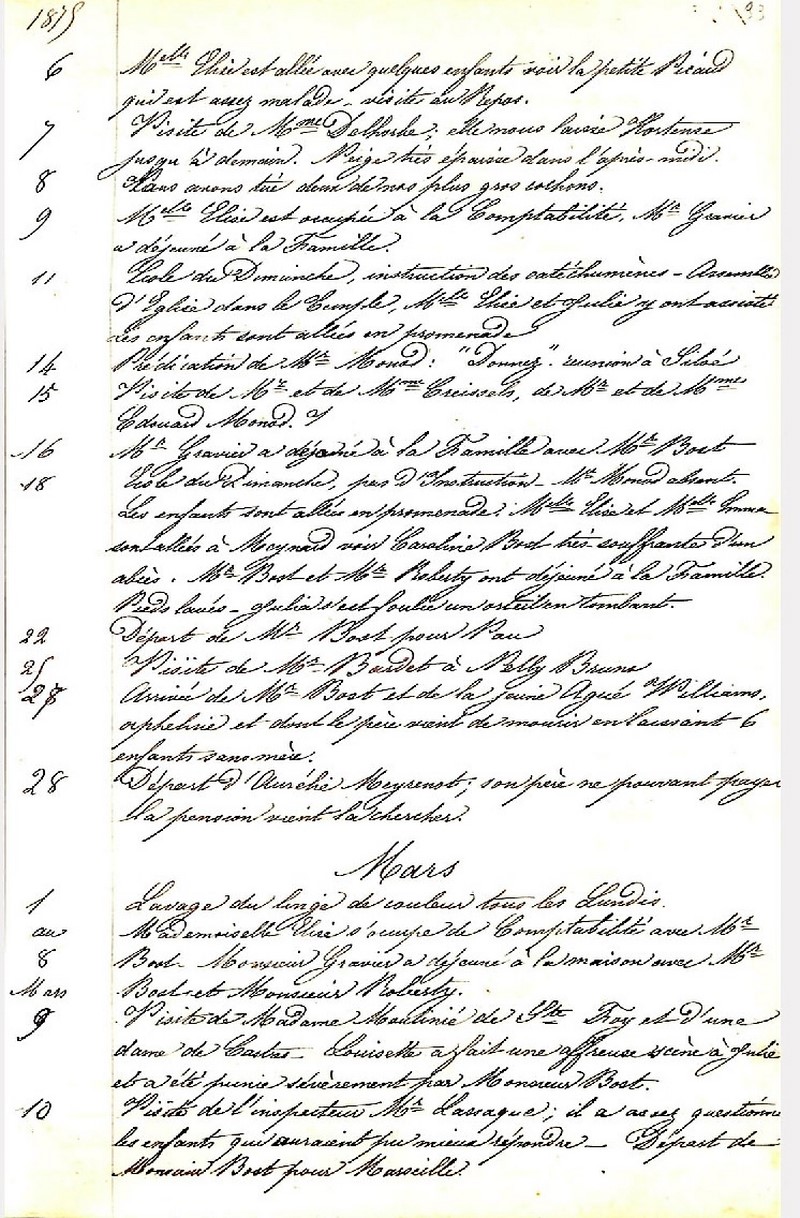 1875
93
6 M<sup>elle</sup> Elise est allée avec quelques enfants voir la petite Picaud
qui est assez malade - visite au Repos.
7 Visite de M<sup>me</sup> Delhorbe; elle nous laisse Hortense
jusqu'à demain. Neige très épaisse dans l'après-midi.
8 Nous avons tué deux de nos plus gros cochons.
9 M<sup>elle</sup> Elise est occupée à la Comptabilité. M<sup>r</sup> Gravier
a déjeuné à la Famille.
11 Ecole du Dimanche, instruction des catéchumènes - Assemblée
d'Eglise dans le Temple, M<sup>elle</sup> Elise et Julie y ont assisté
Les enfants sont allées en promenade
14 Prédication de M<sup>r</sup> Monod: "Donnez". reunion à Siloé
15 Visite de M<sup>r</sup> et de M<sup>me</sup> Creissels, de M<sup>r</sup> et de M<sup>me</sup>
Edouard Monod.
16 M<sup>r</sup> Gravier a déjeuné à la Famille avec M<sup>r</sup> Bost
18 Ecole du Dimanche, pas d'Instruction - M<sup>r</sup> Monod absent.
Les enfants sont allées en promenade. M<sup>elle</sup> Elise et M<sup>elle</sup> Emma
sont allées à Meynard voir Caroline Bost très souffrante d'un
abcès. M<sup>r</sup> Bost et M<sup>r</sup> Roberty ont déjeuné à la Famille.
Pieds lavés - Julia s'est foulé un orteil en tombant.
22 Départ de M<sup>r</sup> Bost pour Pau
25 Visite de M<sup>r</sup> Bardet à Nelly Bruns
27 Arrivée de M<sup>r</sup> Bost et de la jeune Williams,
orpheline et dont le père vient de mourir en laissant 6
enfants sans mère.
28 Départ d'Aurélie Meyrenot; son père ne pouvant payer
la pension vient la chercher.
Mars
1 Lavage du linge de couleur tous les Lundis.
au Mademoiselle Elise s'occupe de Comptabilité avec M<sup>r</sup>
8 Bost. Monsieur Gravier a déjeuné à la maison avec M<sup>r</sup>
Mars Bost et Monsieur Roberty.
9 Visite de Madame Moulinié de S<sup>te</sup> Foy et d'une
dame de Castres - Louisette a fait une affreuse scène à Julie
et a été punie sévèrement par Monsieur Bost.
10 Visite de l'inspecteur M<sup>r</sup> Larraque; il a assez questionné
les enfants qui auraient pu mieux répondre - Départ de
Monsieur Bost pour Marseille.